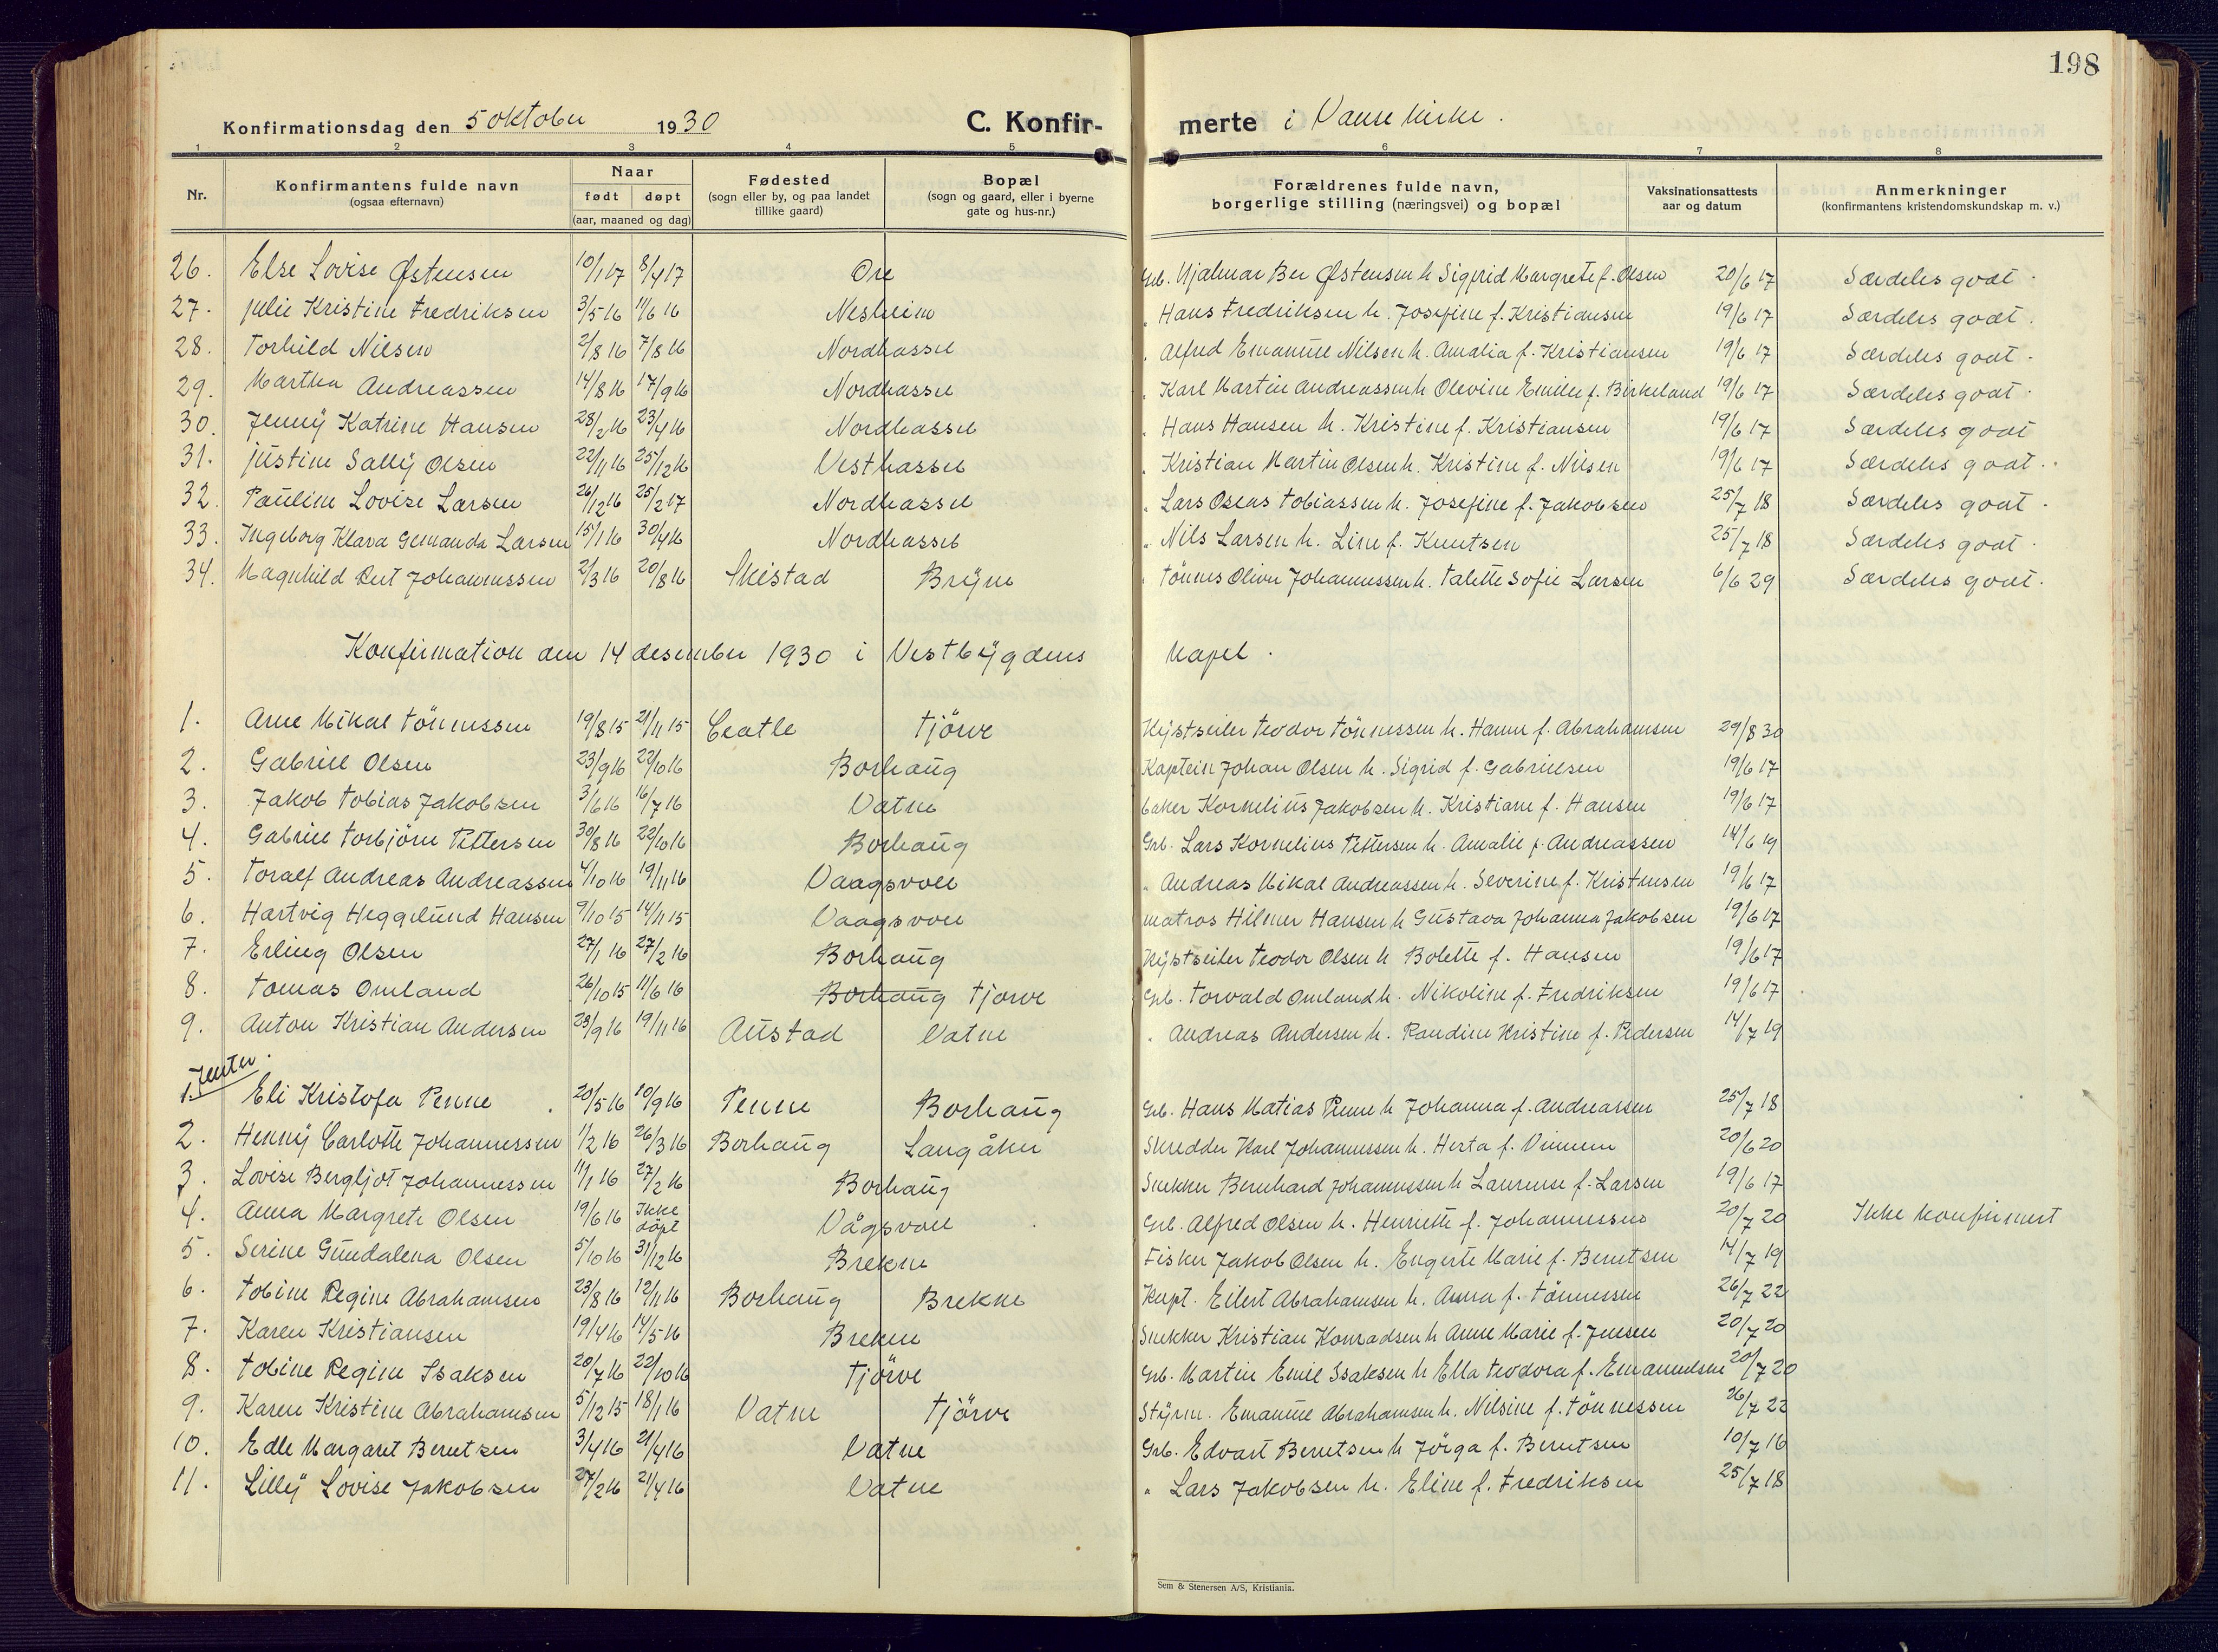 198
Konfirmationsdag den 5 oktober 1930 C. Konfirmerte i Vanse kirke.
1 2 3 4 5 6 7 8
Nr. Konfirmantens fulde navn (ogsaa efternavn) Naar født døpt (aar, maaned og dag) Fødested (sogn eller by, og paa landet tillike gaard) Bopæl (sogn og gaard, eller i byerne gate og hus-nr.) Forældrenes fulde navn, borgerlige stilling (næringsvei) og bopæl Vaksinationsattests aar og datum Anmerkninger (konfirmantens kristendomskundskap m. v.)
26. Else Lovise Østensen 10/1 17 8/4 17 Ore Grb. Hjalmar Ber Østensen h Sigfrid Margrete f. Olsen 20/6 17 Særdeles godt.
27. Julie Kristine Fredriksen 3/5 16 11/6 16 Nesheim " Hans Fredriksen h. Josefine f. Kristiansen 19/6 17 Særdeles godt.
28. Torhild Nilsen 2/8 16 7/8 16 Nordhassel " Alfred Emanuel Nilsen h. Amalia f. Kristiansen 19/6 17 Særdeles godt.
29. Martha Andreassen 14/8 16 17/9 16 Nordhassel " Karl Martin Andreassen h Olevine Emilie f. Birkeland 19/6 17 Særdeles godt.
30. Jenny Katrine Hansen 28/2 16 23/4 16 Nordhassel " Hans Hansen h. Kristine f. Kristiansen 19/6 17 Særdeles godt
31. Justine Sally Olsen 22/11 16 25/12 16 Vesthassel " Kristian Martin Olsen h. Kristine f. Nilsen 19/6 17 Særdeles godt.
32. Pauline Lovise Larsen 26/12 16 25/2 17 Nordhassel " Lars Oseas Tobiassen h. Josefine f. Jakobsen 25/7 18 Særdeles godt.
33. Ingeborg Klara Gemanda Larsen 15/1 16 30/4 16 Nordhassel " Nils Larsen h. Line f. Knutsen 25/7 18 Særdeles godt.
34. Magnhild Rut Johannessen 2/3 16 20/8 16 Skistad Bryne " Tönnes Oliver Johannessen h. Talette Sofie Larsen 6/6 29 Særdeles godt.
Konfirmation den 14 desember 1930 i Vestbygdens kapel.
1. Arne Mikal Tönnessen 19/8 15 21/11 15 Ceatle Tjörve Kystseiler Teodor Tönnessen h. Hanne f. Abrahamsen 29/8 30
2. Gabriel Olsen 23/9 16 22/10 16 Borhaug Kaptein Johan Olsen h. Sigrid f. Gabrielsen 19/6 17
3. Jakob Tobias Jakobsen 3/6 16 16/7 16 Vatne baker Kornelius Jakobsen h. Kristiane f. Hansen 19/6 17
4. Gabriel Torbjörn Pettersen 30/8 16 22/10 16 Borhaug Grb. Lars Kornelius Pettersen h. Amalie f. Andreassen 14/6 19
5. Toralf Andreas Andreassen 4/10 16 19/11 16 Vaagsvoll " Andreas Mikal Andreassen h. Severine f. Kristensen 19/6 17
6. Hartvig Heggelund Hansen 9/10 15 14/11 15 Vaagsvoll matros Hilmer Hansen h Gustava Johanna Jakobsen 19/6 17
7. Erling Olsen 27/1 16 27/2 16 Borhaug Kystseiler Teodor Olsen h Bolette f. Hansen 19/6 17
8. Tomas Omland 26/10 15 11/6 16 Borhaug Tjorve Grb. Torvald Omland h. Nikoline f. Fredriksen 19/6 17
9. Anton Kristian Andersen 23/9 16 19/11 16 Austad Vatne " Andreas Andersen h. Randine Kristine f. Pedersen 14/7 19
Jenter.
1. Eli Kristofa Penne 20/5 16 10/9 16 Penne Borhaug Grb. Hans Matias Penne h Johanna f. Andreassen 25/7 18
2. Henny Carlotte Johannessen 1/2 16 26/3 16 Borhaug Langåker Skredder Karl Johannessen h. Herta f. Vinnem 20/6 20
3. Lovise Bergljot Johannessen 11/1 16 27/2 16 Borhaug Snekker Bernhard Johannessen h Laurense f. Larsen 19/6 17
4. Anna Margrete Olsen 19/6 16 Ikke döpt Vågsvoll Grb. Alfred Olsen h. Henriette f. Johannessen 20/7 20 Ikke konfirmert
5. Serine Gundalena Olsen 5/10 16 31/12 16 Brekne Fisker Jakob Olsen h. Engerte Marie f. Berntsen 14/7 19
6. Tobine Regine Abrahamsen 23/8 16 12/11 16 Borhaug Brekne Kapt. Eilert Abrahamsen h. Anna f. Tönnessen 26/7 22
7. Karen Kristiansen 19/4 16 14/5 16 Brekne Snekker Kristian Konradsen h Anne Marie f. Jensen 20/7 20
8. Tobine Regine Isaksen 20/7 16 22/10 16 Tjörve Grb. Martin Emil Isaksen h Ella Teodora f. Emanuelsen 20/7 20
9. Karen Kristine Abrahamsen 5/12 15 18/1 16 Vatne Tjörve Styrm. Emanuel Abrahamsen h. Nilsine f. Tönnessen 26/7 22
10. Edle Margaret Berntsen 3/4 16 21/4 16 Vatne Grb. Edvart Berntsen h Jörga f. Berntsen 10/7 16
11. Lilly Lovise Jakobsen 27/2 16 21/4 16 Vatne " Lars Jakobsen h. Eline f. Fredriksen 25/7 18
Sem & Stenersen A/S, Kristiania.